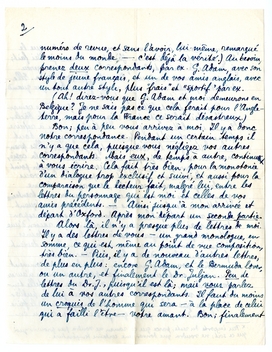 2
numéro de revue, et sans l'avoir, lui-même, remarqué
le moins du monde) — c'est déjà la vérité!) Au besoin
prenez deux correspondants, par ex. G. Adam, avec son
style de jeune français, et un de vos amis anglais, avec
un tout autre style, plus frais et "sportif" par ex.
(Ah! direz-vous que G. Adam et moi demeurons en
Belgique? Je ne sais pas ce que cela ferait pour l'Angle-
terre, mais pour la France ce serait désastreux.)
Bon; peu à peu vous arrivez à moi. Il y a
notre correspondance. Pendant un certain temps il
n'y a que cela, puisque vous négligez vos autres
correspondants. Mais eux, de temps à autre, continuent
à vous écrire. Cela fait très bien, pour la monotonie
d'un dialogue trop exclusif et suivi, et aussi pour la
comparaison que le lecteur fait, malgré lui, entre les
lettres du personnage qui est moi et celles de vos
amis précédents. — Ainsi jusqu'à mon arrivée et
départ d'Oxford. Après mon départ un seconde partie.
Alors là, il n'y a presque plus de lettres de moi.
Il y a des lettres de vous — un grand monologue, en
somme, ce qui est même au point de vue composition,
très bien. — Puis, il y a de nouveau d'autres lettres,
de plus en plus: encore G. Adam, et le Bermuda lover,
ou un autre, et finalement le Dr. Juljan. Peu de
lettres du Dr. J. puisqu'il est là; mais vous parlez
de lui à vos autres correspondants. Il faut du moins
un croquis de l'homme qui sera — à la place de celui
qui a failli l'être — votre amant. Bon; finalement